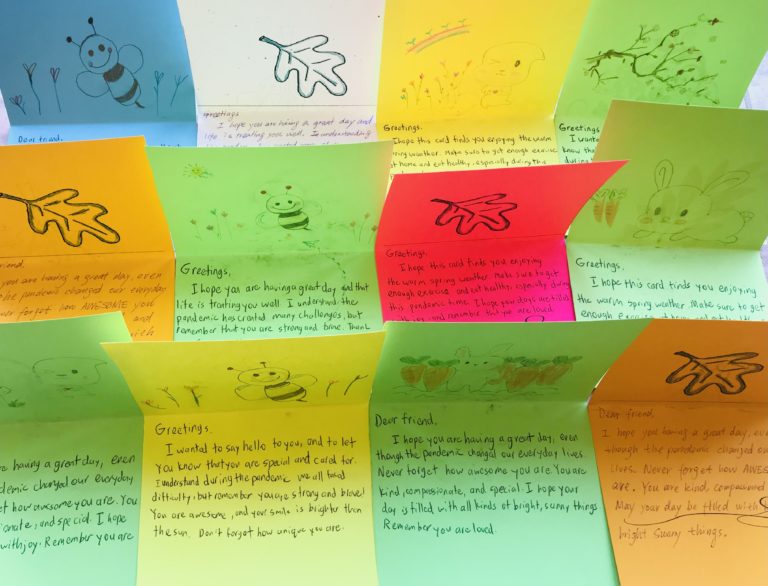 Dear friend.
Greetings
I hope you are having a great day and
life is treating you well. I understanding
Greetings.
I hope this card finds you enjoying the warm
spring weather. Make sure to get enough exercise
at home and eat healthy, especially during this
Greetings
I wanted
know that
during
friend.
you are having a great day, even
the pandemic changed our everyday
ever forget how AWESOME you
and
Greetings,
I hope you are having a great day and that
life is treating you well. I understand the
pandemic has created many challenges, but
remember that you are strong and brave. Thank
Greetings.
I hope this card finds you enjoying
the warm spring weather. Make sure to get
enough exercise and eat healthy, especially during
this pandemic time. I hope your days are
and remember that you are loved
Greetings,
I hope this card finds you enjoying
the warm spring weather. Make sure to get
enough
are having a great day, even
demic changed our everyday
et how awesome you are. You
onate, and special. I hope
with joy. Remember you are
Greetings.
I wanted to say hello to you, and to let
you know that you are special and cared for.
I understand during the pandemic we all faced
difficulty, but remember you are strong and brave!
You are awesome, and your smile is brighter than
the sun. Don't forget how unique you are.
Dear friend,
I hope you are having a great day, even
though the pandemic changed our everyday lives.
Never forget how awesome you are. You are
kind, compassionate, and special. I hope your
day is filled with all kinds of bright, sunny things
Remember you are loved.
Dear friend.
I hope you having a great day, eve
though the pandemic changed ou
lives. Never forget how AWES
are. You are kind, compassionat
May your day be filled with
bright sunny things.